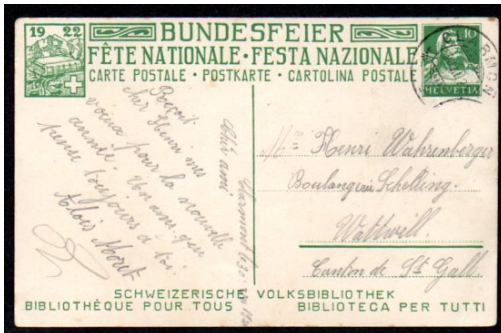 19 22
BUNDESFEIER
FÊTE NATIONALE · FESTA NAZIONALE
CARTE POSTALE · POSTKARTE · CARTOLINA POSTALE
10
HELVETIA
Reçoit
cher Henri mes
voeux pour la nouvelle
année. Un ami qui
pense toujours à toi.
Alois
Cher ami
Mr Henri Wahrenberger
Boulangerie Schelling.
Wattwill.
Canton de St Gall.
SCHWEIZERISCHE VOLKSBIBLIOTHEK
BIBLIOTHÈQUE POUR TOUS BIBLIOTECA PER TUTTI